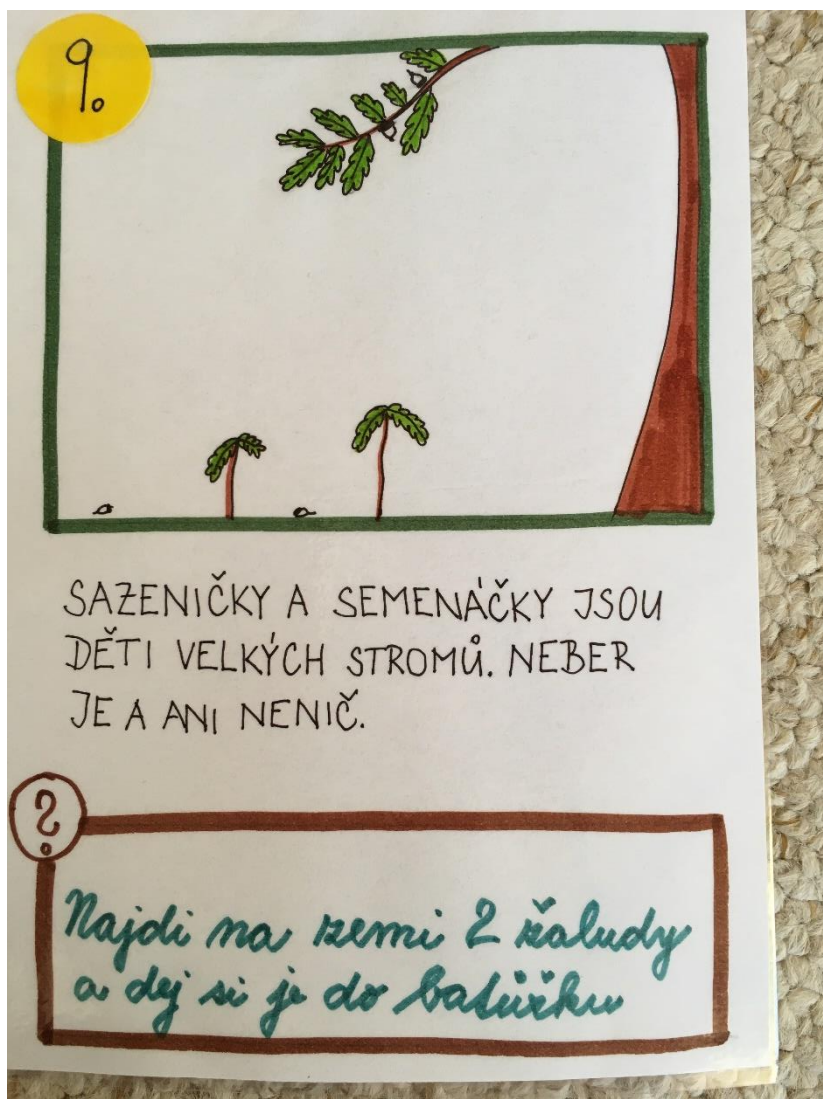 9.
SAZENIČKY A SEMENÁČKY JSOU
DĚTI VELKÝCH STROMŮ. NEBER
JE A ANI NENIČ.
?
Najdi na zemi 2 žaludy
a dej si je do batůžku